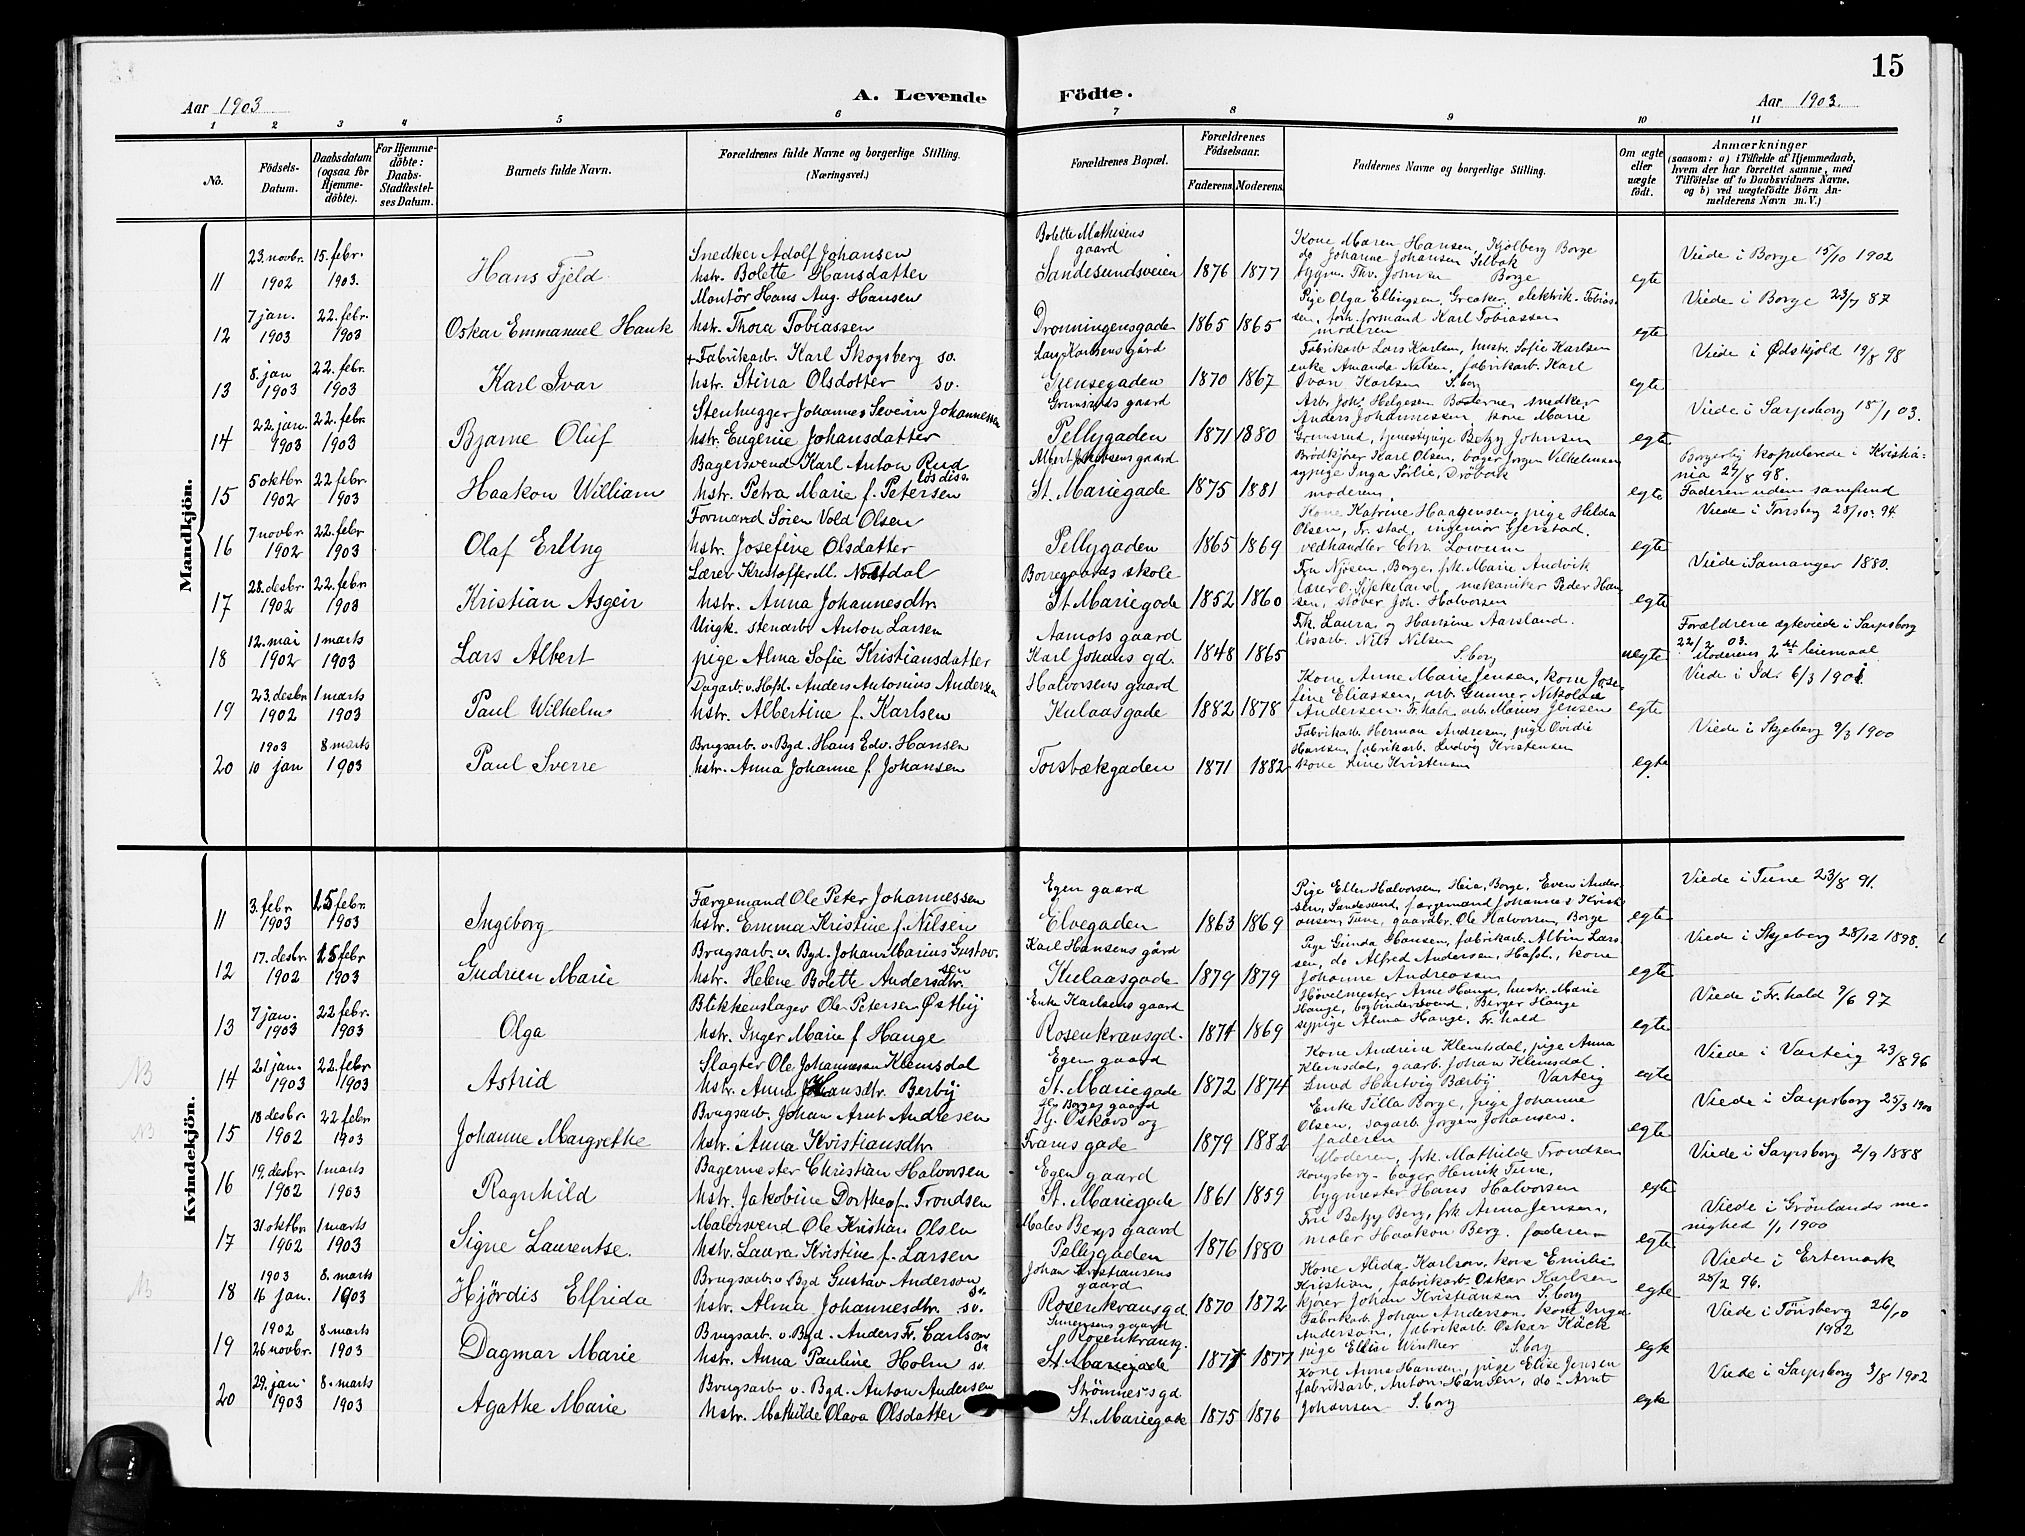 15
Aar 1903
A. Levende Födte.
Aar 1903.
1 2 3 4 5 6 7 8 9 10 11
No.
Födsels-Datum.
Daabsdatum (ogsaa for Hjemme-döbte).
For Hjemme-döbte: Daabs-Stadfæstel-ses Datum.
Barnets fulde Navn.
Forældrenes fulde Navne og borgerlige Stilling.
(Næringsvei.)
Forældrenes Bopæl.
Forældrenes Födselsaar.
Faderens. Moderens.
Faddernes Navne og borgerlige Stilling.
Om ægte eller uægte födt.
Anmærkninger
(saasom: a) i Tilfælde af Hjemmedaab,
hvem der har forrettet samme, med
Tilföielse af to Daabsvidners Navne,
og b) ved uægtefödte Börn An-
melderens Navn m. V.)
Mandkjön.
11 23. novbr. 1902 15. febr. 1903. Hans Fjeld
Snedker Adolf Johansen
hstr. Bolette Hansdatter
Bolette Mathisens gaard
Sandesundsveien 1876 1877
Kone Maren Hansen, Kjølberg Borge
do Johanne Johansen Selbak
bygm. Thv. Johnsen Borge
egte Viede i Borge 15/10 1902
12 7 jan. 1903 22. febr. 1903 Oskar Emmanuel Hauk
Montör Hans Aug. Hansen
hstr. Thora Tobiassen
Dronningensgade 1865 1865
Pige Olga Ellingsen, Greaker, elektrik. Tobias-
sen, forh. formand Karl Tobiassen
moderen
egte Viede i Borge 23/7 87
13 8. jan 1903 22. febr. 1903 Karl Ivar
Fabrikarb. Karl Skogsberg sv.
hstr. Stina Olsdotter sv.
Lars Karlsens gård
Grensegaden 1870 1867
Fabrikarb Lars Karlsen, hustr. Sofie Karlsen
enke Amanda Nilsen, fabrikarb. Karl
Ivar Karlsen S.borg
egte Viede i Ødskjold 19/8 98
14 22. jan. 1903 22. febr. 1903 Bjarne Oluf
Stenhugger Johannes Severin Johannessen
hstr. Eugenie Johansdatter
Grimsruds gaard
Pellygaden 1871 1880
Arb. Joh. Helgesen Boderne, snedker
Anders Johannessen kone Marie
Grimsrud, tjenestpige Betzy Johnsen
egte Viede i Sarpsborg 18/1 03.
15 5 oktbr. 1902 22 febr. 1903 Haakon William
Bagersvend Karl Anton Rud
hstr. Petra Marie f. Petersen lös diss.
Albert Jakobsens gaard
St. Mariegade 1875 1881
Brödkjörer Karl Olsen, bager Jörgen Vilhelmsen
sypige Inga Sörlie, Dröbak
moderen.
egte Borgerlig kopulerede i Kristia-
nia 27/8 98.
Faderen uden samfund
16 7 novbr. 1902 22. febr. 1903 Olaf Erling
Formand Sören Vold Olsen
hstr. Josefine Olsdatter
Pellygaden 1865 1869
Kone Katrine Haagensen, pige Hilda
Olsen, Fr. stad, ingeniör Gjerstad.
vedhandler Chr. Lowum
egte Viede i Tönsberg 28/10. 94.
17 28. desbr. 1902 22. febr. 1903 Kristian Asgeir
Lærer Kristoffer M. Nordal
hstr. Anna Johannesdtr.
Borregaards skole
St. Mariegade 1852 1860
Fru Njösen, Borge, frk. Marie Andvik
lærer O. Sjikeland, mekaniker Peder Han
sen, stöber Joh. Halvorsen
egte Viede i Samanger 1880.
18 12. mai 1902 1 marts 1903 Lars Albert
Ungk. stenarb. Anton Larsen
pige Alma Sofie Kristiansdatter
Aamots gaard
Karl Johans gd. 1848 1865
Frk. Laura og Hartvine Aarsland.
lösarb. Nils Nilsen
S.borg
uegte Forældrene ægteviede i Sarpsborg
22/2 03.
Moderens 2det leiemaal
19 23 desbr. 1902 1 marts 1903 Paul Wilhelm
Dagarb. v. Hafsl. Anders Antonius Andersen
hstr. Albertine f. Karlsen
Halvorsens gaard
Kulaasgade 1882 1878
Kone Anne Marie Jensen, kone Jose
fine Eliassen, arb. Gunner Nikolai
Andersen Fr.hald arb. Marius Jensen
egte Viede i Idr 6/3 1901
20 1903 10 jan 8 marts 1903 Paul Sverre
Brugsarb. v. Bgd. Hans Edv. Hansen
hstr. Anna Johanne f. Johansen
Torsbækgaden 1871 1882
Fabrikarb. Herman Andresen, pige Ovidie
Hansen, fabrikarb. Ludvig Kristensen
kone Line Kristensen
egte. Viede i Skjeberg 9/3 1900
Kvindekjön.
11 3. febr 1903 15 febr. 1903 Ingeborg
Færgemand Ole Peter Johannessen
hstr. Emma Kristine f. Nilsen
Egen gaard
Elvegaden 1863 1869
Pige Ellen Halvorsen, Heia, Borge, Even Ander-
sen, Sandesund, færgemand Johannes Krist
ansen, Tune, gaardbr. Ole Halvorsen, Borge
egte Viede i Tune 23/8 91.
12 17. desbr. 1902 15 febr 1903 Gudrun Marie
Brugsarb. v. Bgd. Johan Marius Gustav-
sen
hstr. Helene Bolette Andersdtr.
Karl Hansens gård
Kulaasgade 1879 1879
Pige Gunda Hansen, fabrikarb. Albin Lars
sen, do Alfred Andersen, Hafsl., kone
Johanne Andreassen
egte Viede i Skjeberg 28/12 1898.
13 7 jan. 1903 22 febr. 1903 Olga
Blikkenslager Ole Petersen Østby
hstr. Inger Marie f Hauge
Enke Karlsens gaard
Rosenkransgd. 1874 1869
Hövelmester Arne Hauge, hustr. Marie
Hauge, bogbindersvend Birger Hauge
sypige Alma Hauge, Fr. hald
egte Viede i Fr. hald 9/6 97
NB
14 21 jan. 1903 22. febr 1903 Astrid
Slagter Ole Johannessen Klemsdal
hstr. Anna Hansdtr. Berby
Egen gaard
St. Mariegade 1872 1874
Kone Andrine Klemsdal, pige Anna
Klemsdal, gaarb. Johan Klemsdal
Lund Hartvig Bærby. Varteig
egte Viede i Varteig 23/8 96
NB
15 18 desbr. 1902 22 febr. 1903 Johanne Margrethe
Brugsarb. Johan Arnt Andresen
hstr. Anna Kristiansdtr.
Borges gaard
Hj. Oskars og
Framsgade 1879 1882
Enke Tilla Borge, pige Johanne
Olsen, sagarb. Jörgen Johansen.
faderen
egte Viede i Sarpsborg 25/3 1900
16 19. desbr. 1902 1 marts 1903 Ragnhild
Bagermester Christian Halvorsen
hstr. Jakobine Dorthea f. Trondsen
Egen gaard
St. Mariegade 1861 1859
Moderen, frk. Mathilde Trondsen
Kongsberg, bager Henrik Tune,
bygmester Hans Halvorsen
egte Viede i Sarpsborg 2/9 1888
17 31 oktbr. 1902 1 marts 1903 Signe Laurentse.
Malersvend Ole Kristian Olsen
hstr. Laura Kristine f. Larsen
Maler Bergs gaard
Pellygaden 1876 1880
Fru Betzy Berg, frk Anna Jensen,
maler Haakon Berg. faderen
egte Viede i Grönlands me-
nighed 1/1 1900
NB
18 1903 16 jan. 8. marts 1903 Hjördis Elfrida
Brugsarb. v. Bgd Gustav Anderson sv.
hstr. Alma Johannesdtr. sv.
Johan Kristiansens gaard
Rosenkransgd 1870 1872
Kone Alida Karlson, kone Emilie
Kristian, fabrikarb. Oskar Karlsen
kjörer Johan Kristiansen S.borg
egte Viede i Ertemark
28/2 96.
19 1902 26 novbr. 8 marts 1903 Dagmar Marie
Brugsarb. v. Bgd. Anders Fr. Carlson sv
hstr. Anna Pauline Holm sv.
Rosenkransg.
St. Mariegade 1877 1877
Fabrikarb. Johan Anderson, kone Inga
Anderson, fabrikarb Oskar Käck
pige Ellise Winther S.borg
egte Viede i Tönsberg 26/10
1902
20 29. jan. 1903 8. marts 1903 Agathe Marie
Brugsarb. v. Bgd. Anton Andersen
hstr. Mathilde Olava Olsdatter
Strömnessgd
St. Mariegade 1875 1876
Kone Anne Hansen, pige Elise Jensen
fabrikarb. Anton Hansen, do Arnt
Johansen S.borg
egte Viede i Sarpsborg 3/8 1902